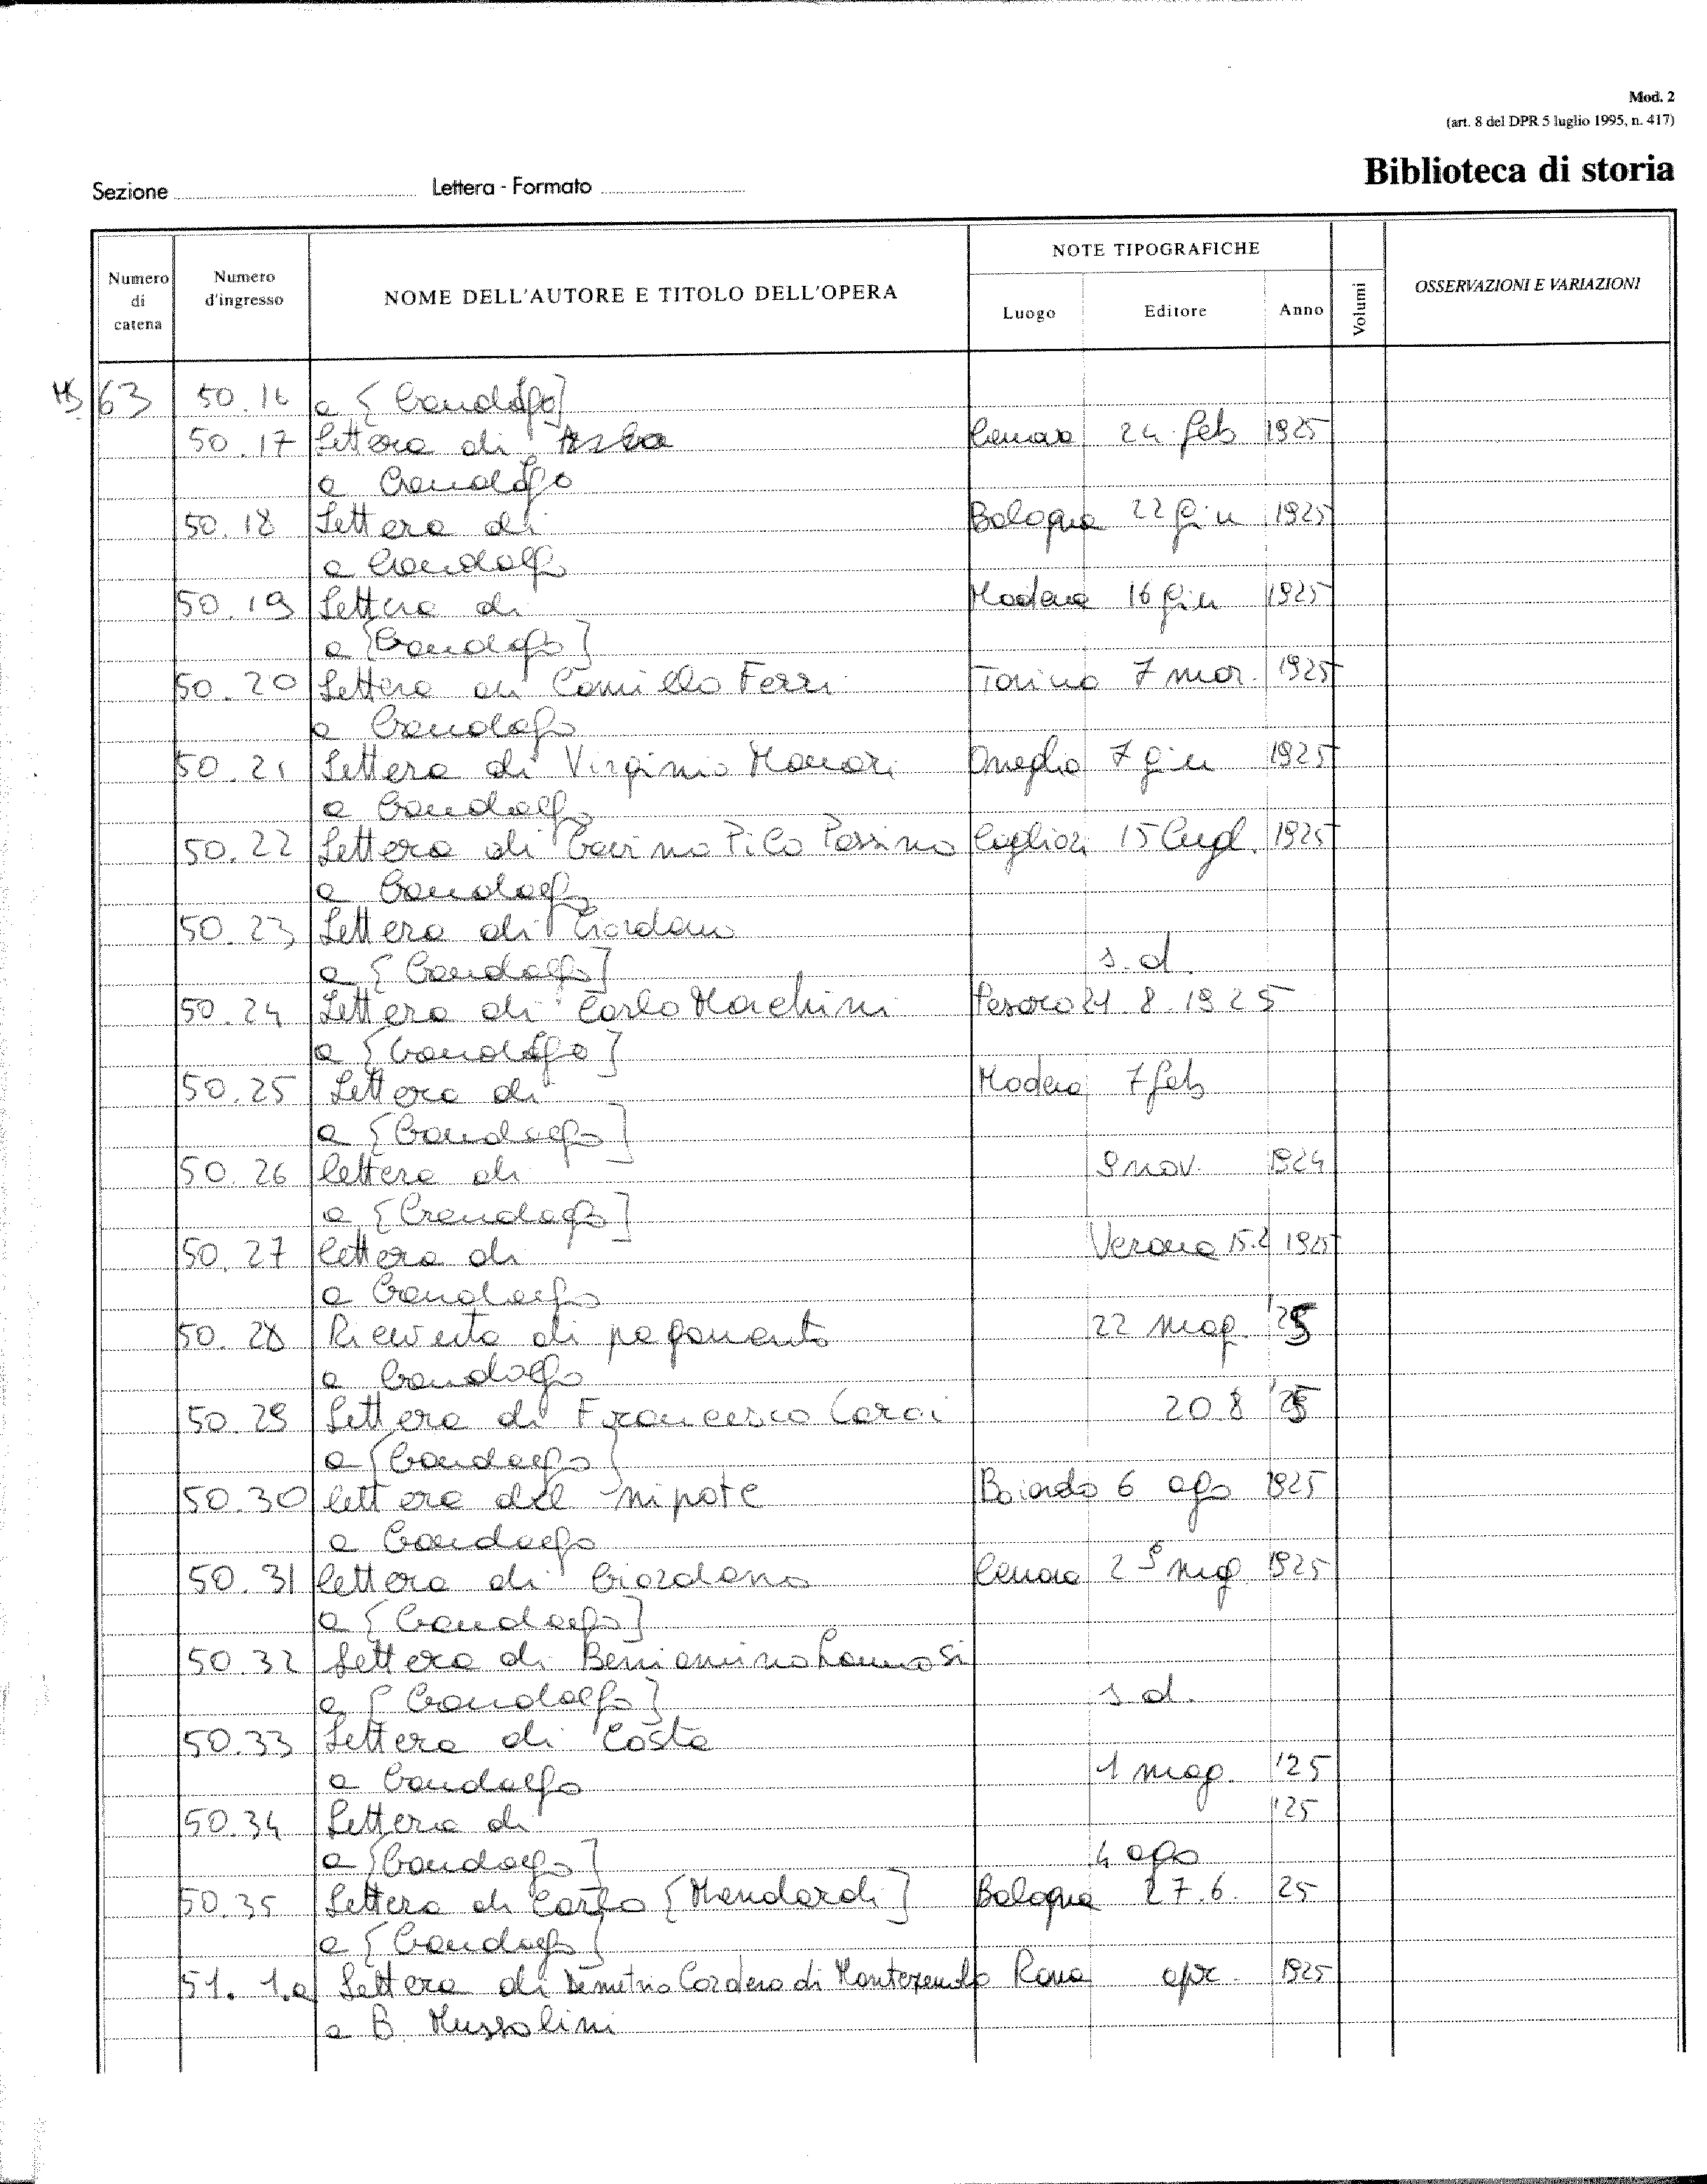 Mod. 2
(art. 8 del DPR 5 luglio 1995, n. 417)
Biblioteca di storia
Sezione Lettera - Formato
Numero di catena Numero d'ingresso NOME DELL'AUTORE E TITOLO DELL'OPERA NOTE TIPOGRAFICHE Luogo Editore Anno Volumi OSSERVAZIONI E VARIAZIONI
MS 63 50.16 a [Gandolfo]
50.17 Lettera di Genova 24 feb 1925
a Gandolfo
50.18 Lettera di Bologna 22 giu 1925
a Gandolfo
50.19 Lettera di Modena 16 giu 1925
a [Gandolfo]
50.20 Lettera di Camillo Ferri Torino 7 mar. 1925
a Gandolfo
50.21 Lettera di Virginio Oneglia 7 giu 1925
a Gandolfo
50.22 Lettera di Gavino Cagliari 15 lugl. 1925
a Gandolfo
50.23 Lettera di Giordano
a [Gandolfo] s.d.
50.24 Lettera di Carlo Marchini Pesaro 21.8.1925
a [Gandolfo]
50.25 Lettera di Modena 7 feb
a [Gandolfo]
50.26 lettera di 9 nov. 1924
a [Gandolfo]
50.27 lettera di Verona 15.2 1925
a Gandolfo
50.28 Ricevuta di pagamento 22 mag. '25
a Gandolfo
50.29 Lettera di Francesco 20.8 '25
a [Gandolfo]
50.30 lettera del nipote 6 ago 1925
a Gandolfo
50.31 lettera di Giordano Genova 29 mag. 1925
a [Gandolfo]
50.32 Lettera di Beniamino
a [Gandolfo] s.d.
50.33 Lettera di Costa
a Gandolfo 1 mag. '25
50.34 Lettera di '25
a [Gandolfo] 4 ago
50.35 Lettera di Carlo [Mendardi] Bologna 27.6. 25
a [Gandolfo]
51. 1.a Lettera di Demetrio Cordero di Montezemolo Roma apr. 1925
a B. Mussolini